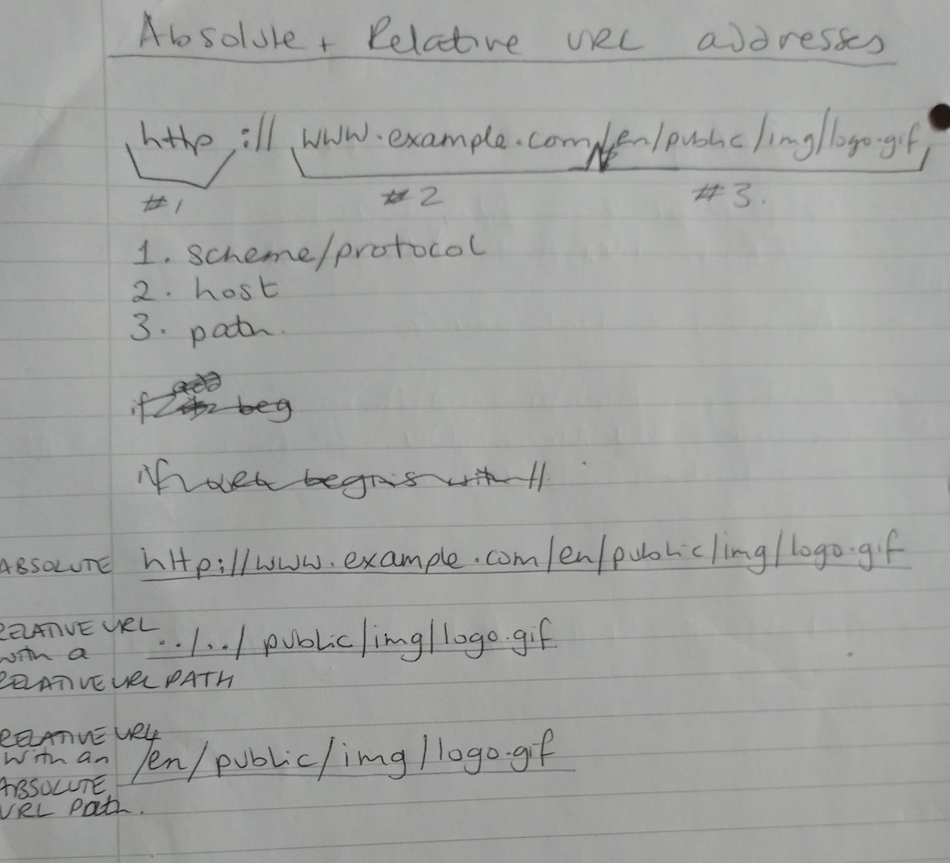 Absolute + Relative URL addresses
http :// www.example.com/en/public/img/logo.gif
#1 #2 #3.
1. scheme/protocol
2. host
3. path.
if beg
if begins with //
ABSOLUTE http://www.example.com/en/public/img/logo.gif
RELATIVE URL
with a ../../public/img/logo.gif
RELATIVE URL PATH
RELATIVE URL
with an /en/public/img/logo.gif
ABSOLUTE
URL Path.